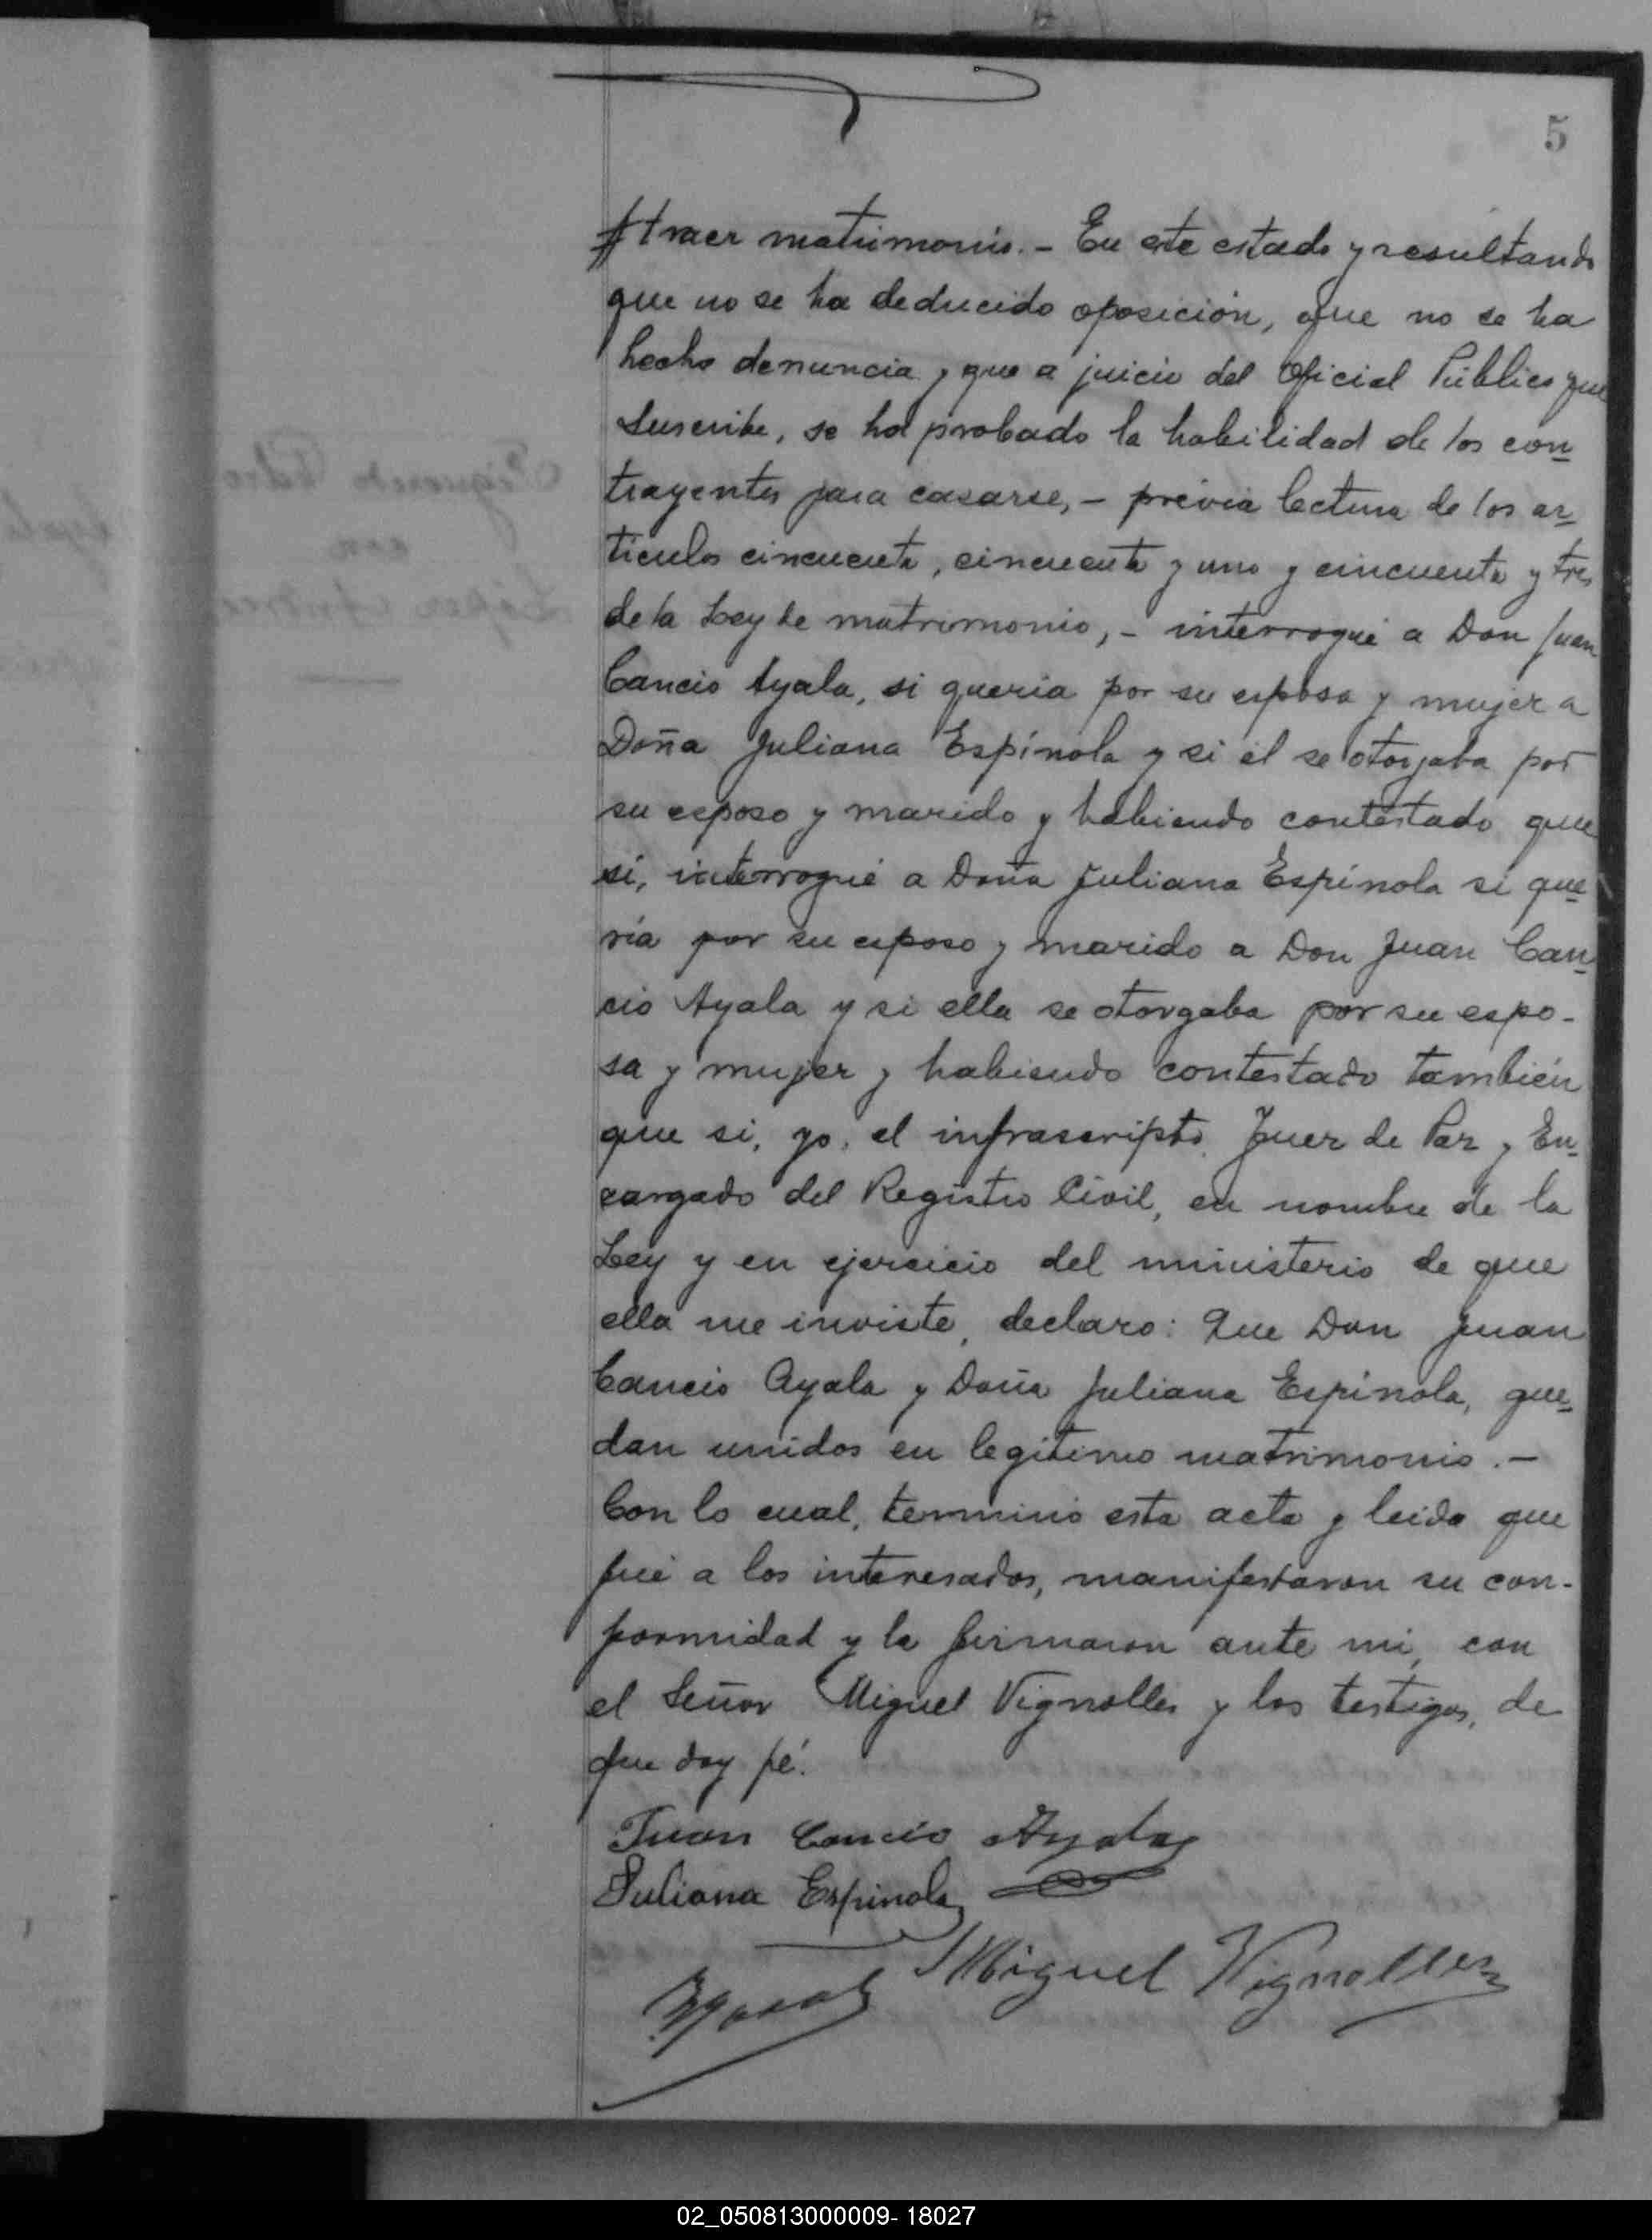 5
traer matrimonio. - En este estado y resultando
que no se ha deducido oposición, que no se ha
hecho denuncia y que a juicio del Oficial Público que
suscribe, se ha probado la habilidad de los con-
trayentes para casarse, - previa lectura de los ar-
ticulos cincuenta, cincuenta y uno y cincuenta y tres
de la Ley de matrimonio, - interrogué a Don Juan
Cancio Ayala, si queria por su esposa y mujer a
Doña Juliana Espínola y si él se otorgaba por
su esposo y marido y habiendo contestado que
si, interrogué a Doña Juliana Espínola si que-
ría por su esposo y marido a Don Juan Can-
cio Ayala y si ella se otorgaba por su espo-
sa y mujer y habiendo contestado también
que si, yo, el infrascripto, Juez de Paz y En-
cargado del Registro Civil, en nombre de la
Ley y en ejercicio del ministerio de que
ella me inviste, declaro: Que Don Juan
Cancio Ayala y Doña Juliana Espínola, que-
dan unidos en legítimo matrimonio. -
Con lo cual, terminó esta acta y leida que
fué a los interesados, manifestaron su con-
formidad y la firmaron ante mi, con
el Señor Miguel Vignolles y los testigos, de
que doy fé.
Juan Cancio Ayala
Juliana Espinola
Miguel Vignolles
02_050813000009- 18027